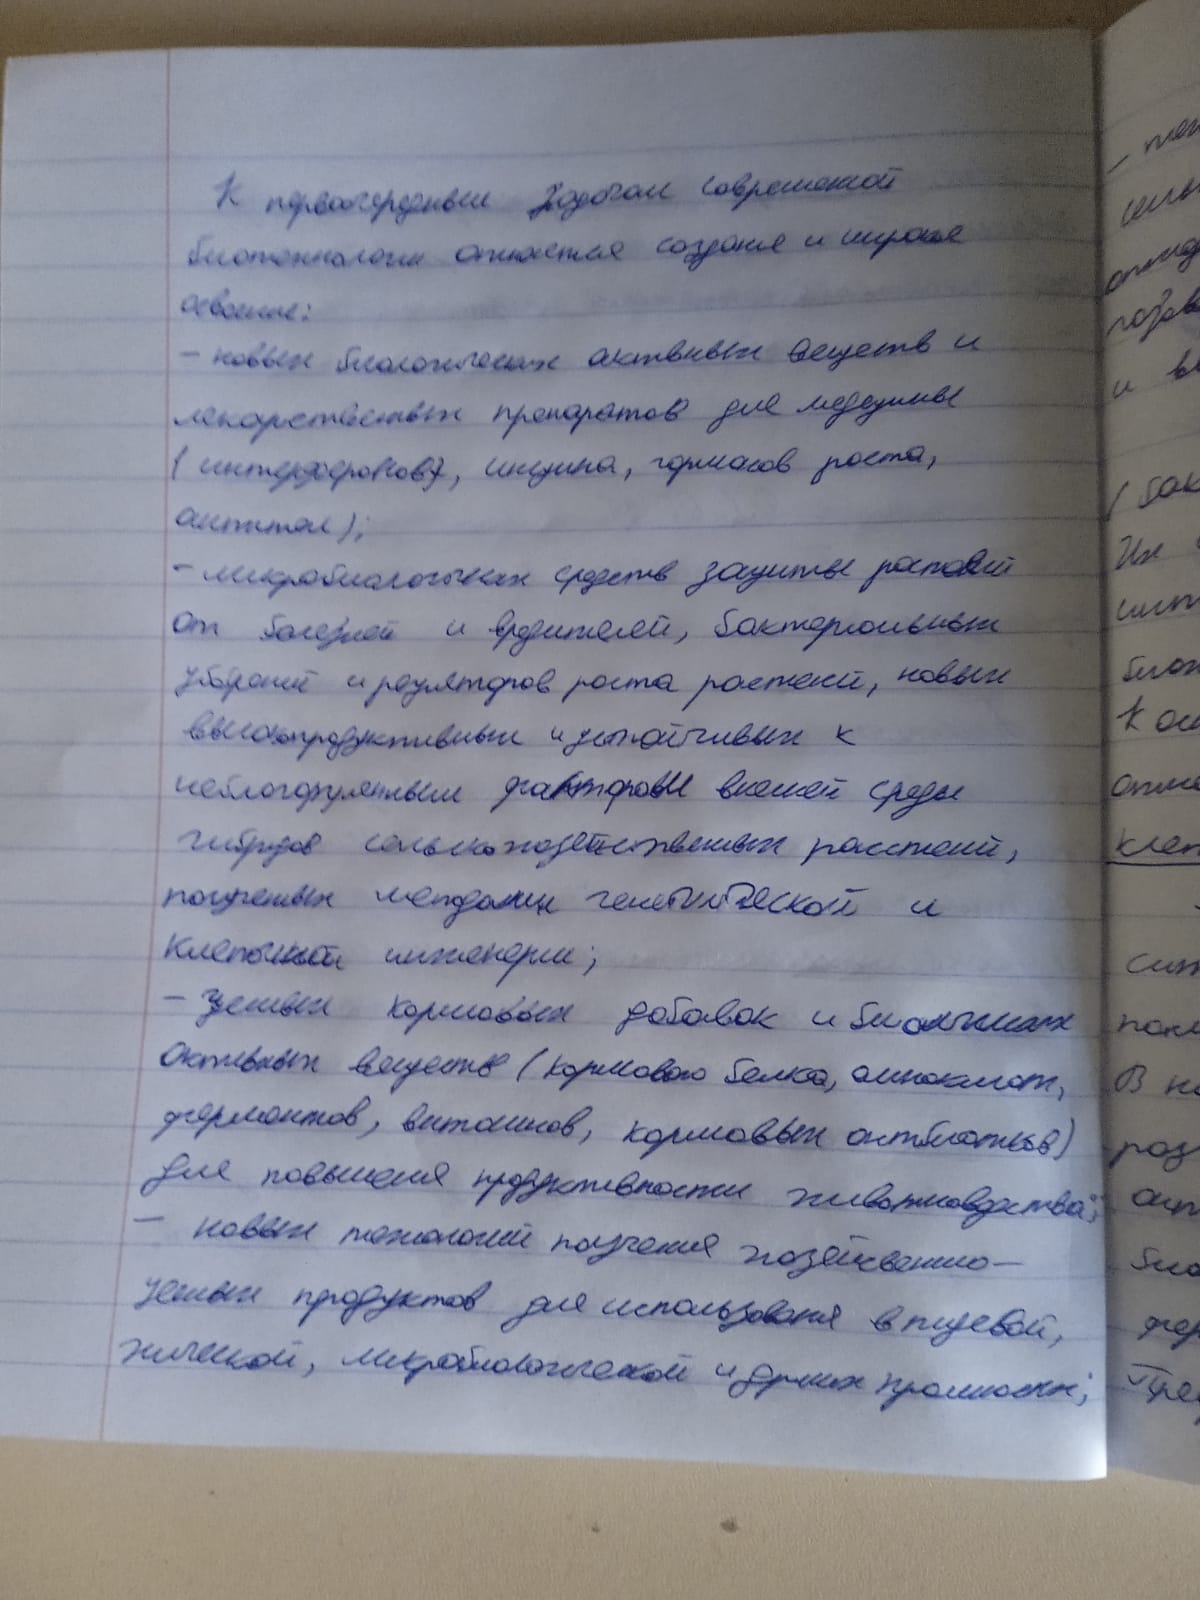 К первоочередным задачам современной
биотехнологии относятся создание и широкое
освоение:
- новых биологических активных веществ и
лекарственных препаратов для медицины
(интерферонов), инсулина, гормонов роста,
антител);
- микробиологических средств защиты растений
от болезней и вредителей, бактериальных
удобрений и регуляторов роста растений, новых
высокопродуктивных и устойчивых к
неблагоприятным факторам внешней среды
гибридов сельскохозяйственных растений,
полученных методами генетической и
клеточной инженерии;
- ценных кормовых добавок и биологических
активных веществ (кормового белка, аминокислот,
ферментов, витаминов, кормовых антибиотиков)
для повышения продуктивности животноводства;
- новых технологий получения хозяйственно-
ценных продуктов для использования в пищевой,
химической, микробиологической и других промышленности;